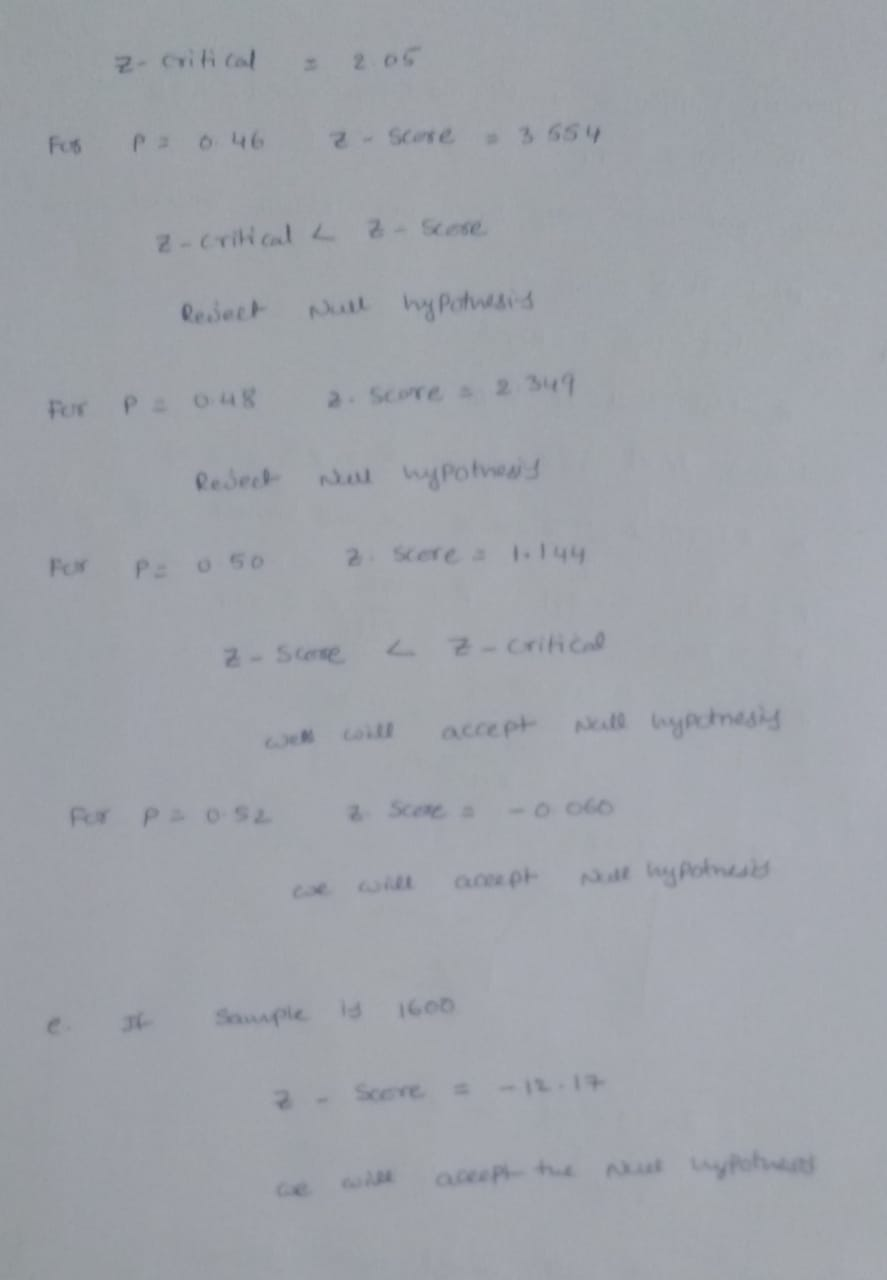 z-critical = 2.05
For P = 0.46 z - score = 3.554
z-critical < z-score
Reject Null hypothesis
For P = 0.48 z. score = 2.349
Reject Null hypothesis
For P = 0.50 z. score = 1.144
z-score < z-critical
will accept Null hypothesis
For P = 0.52 z. score = -0.060
we will accept Null hypothesis
e. If sample is 1600
z - score = -12.17
we will accept the Null hypothesis